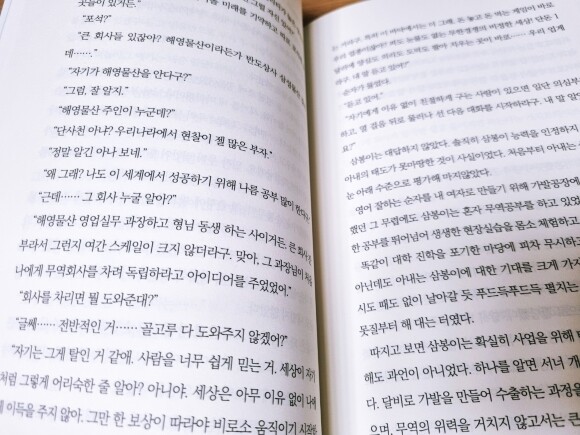 곳들이 있거든."
"포석?"
"큰 회사들 있잖아? 해영물산이라든가 반도상사
데……."
"자기가 해영물산을 안다구?"
"그럼, 잘 알지."
"해영물산 주인이 누군데?"
"단사천 아냐? 우리나라에서 현찰이 젤 많은 부자."
"정말 알긴 아나 보네."
"왜 그래? 나도 이 세계에서 성공하기 위해 나름 공부 많이
"근데…… 그 회사 누굴 알아?"
"해영물산 영업실무 과장하고 형님 동생 하는 사이거든. 큰 회사
부라서 그런지 여간 스케일이 크지 않더라구. 맞아, 그 과장님이
나에게 무역회사를 차려 독립하라고 아이디어를 주었었어."
"회사를 차리면 뭘 도와준대?"
"글쎄…… 전반적인 거…… 골고루 다 도와주지 않겠어?"
"자기는 그게 탈인 거 같애. 사람을 너무 쉽게 믿는 거. 세상이 자기
처럼 그렇게 어리숙한 줄 알아? 아니야. 세상은 아무 이유 없이
이득을 주지 않아. 그만 한 보상이 따라야 비로소 움직이기 시작하
구, 내 말 듣고 있어?"
순자가 물었다.
"듣고 있어."
"자기에게 이유 없이 친절하게 구는 사람이 있으면 일단 의심부
하고, 몇 걸음 뒤로 물러나 선 다음 대화를 시작하라구. 내 말 알
요?"
삼봉이는 대답하지 않았다. 솔직히 삼봉이 능력을 인정하지
아내의 태도가 못마땅한 것이 사실이었다. 처음부터 아내는
눈 아래 수준으로 평가해 마지않았다.
영어 잘하는 순자를 내 여자로 만들기 위해 가발공장에
했던 그 무렵에도 삼봉이는 혼자 무역공부를 하고 있었
한 공부를 뛰어넘어 생생한 현장실습을 몸소 체험하고
똑같이 대학 진학을 포기한 마당에 피차 무시하고
아닌데도 아내는 삼봉이에 대한 기대를 크게 가지
시도 때도 없이 날아갈 듯 푸드득푸드득 펼치는
못질부터 해 대는 터였다.
따지고 보면 삼봉이는 확실히 사업을 위해
해도 과언이 아니었다. 하나를 알면 서너 개
다. 달비로 가발을 만들어 수출하는 과정을
으며, 무역의 위력을 거치지 않고서는 큰